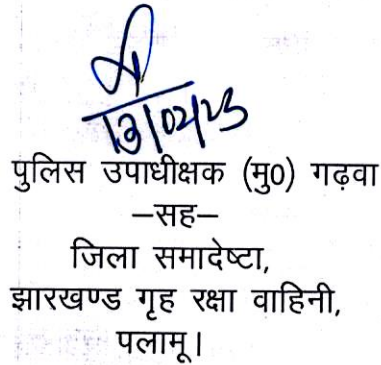 13/02/23
पुलिस उपाधीक्षक (मु0) गढ़वा
–सह–
जिला समादेष्टा,
झारखण्ड गृह रक्षा वाहिनी,
पलामू।